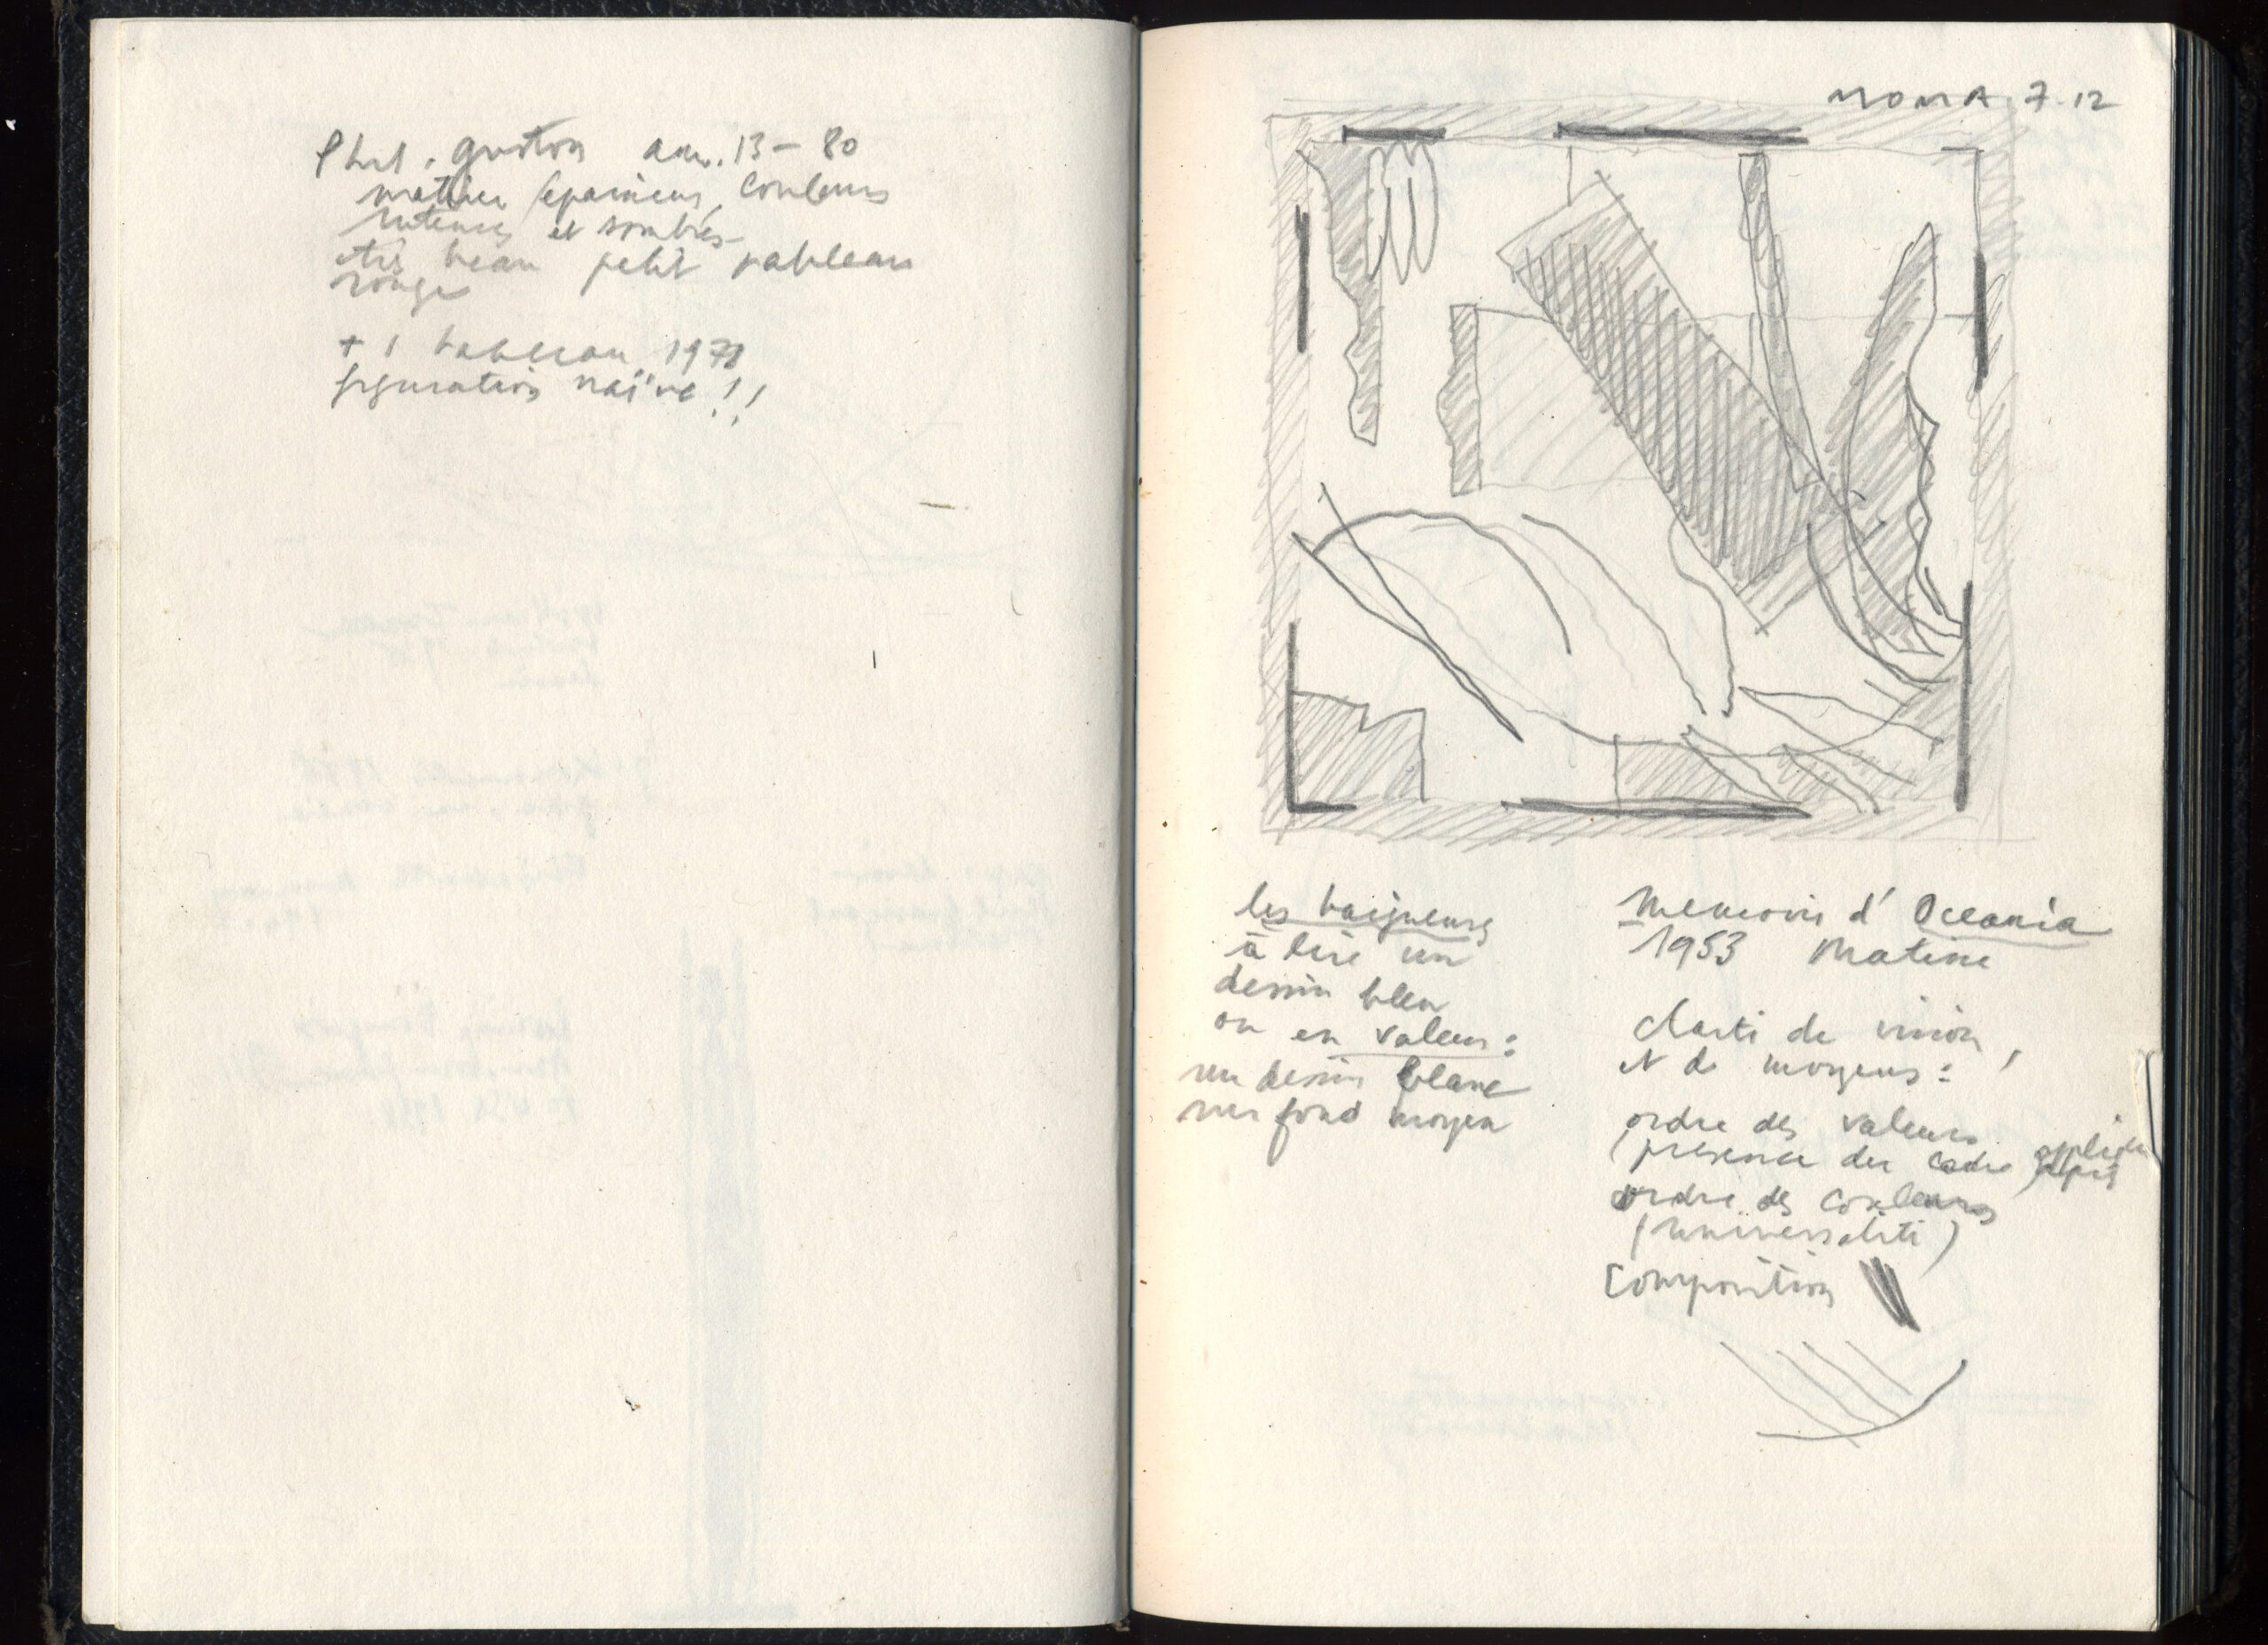 Phil. Guston am. 13-80
matière/épaisseur, couleurs
intenses et sombres
très beau petit tableau
rouge
+ 1 tableau 1978
figuration naïve!!
MOMA 7.12
les baigneuses
à lire un
dessin bleu
ou en valeur:
un dessin blanc
sur fond moyen
Memoris d' Oceania
1953 Matisse
clarté de vision,
et de moyens:
ordre des valeurs
(présence du cadre
ordre des couleurs
(universalité)
Composition